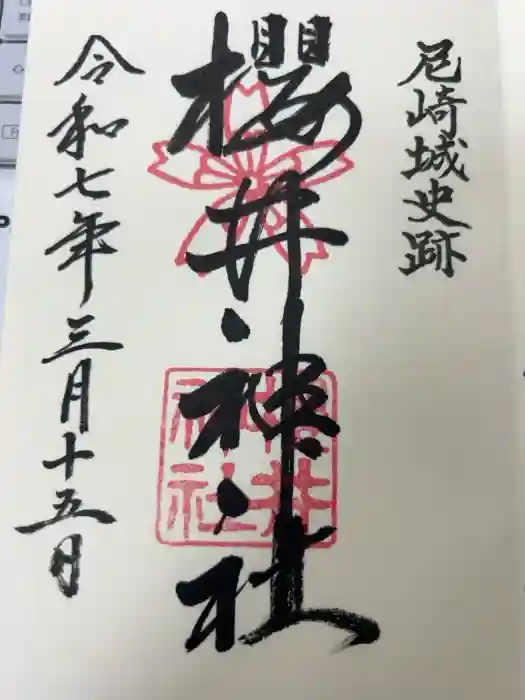 尼崎城史跡
櫻井神社
櫻井
神社
令和七年三月十五日